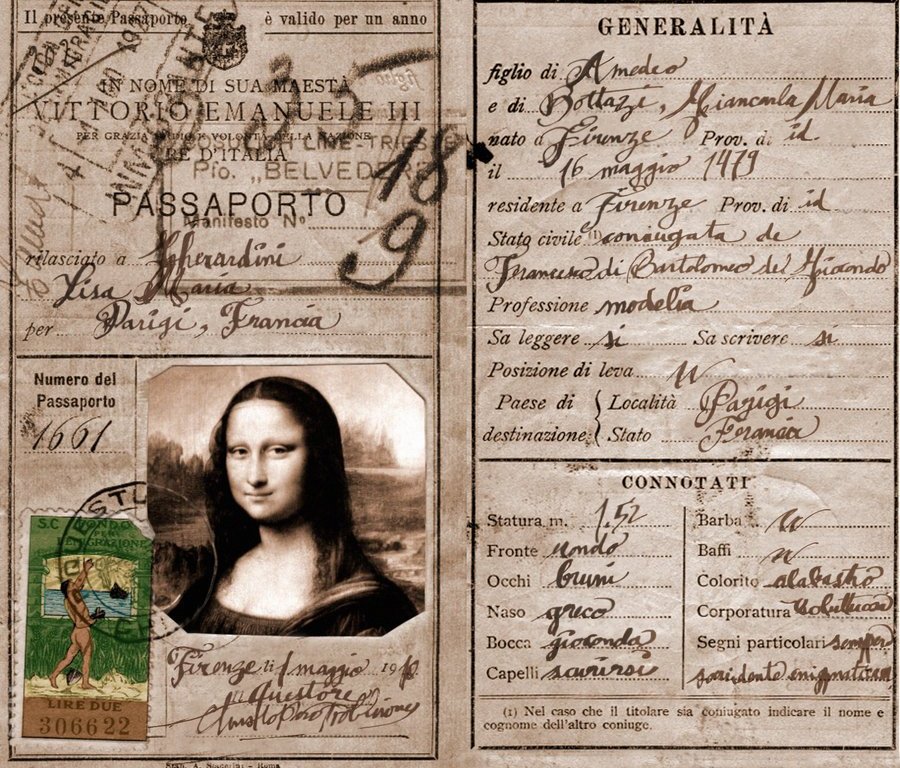 Il presente Passaporto è valido per un anno
IN NOME DI SUA MAESTÀ
VITTORIO EMANUELE III
PER GRAZIA DI DIO E VOLONTÀ DELLA NAZIONE
RE D'ITALIA
COSULICH LINE-TRIESTE
P.fo. „BELVEDERE
PASSAPORTO
Manifesto N°
18
9
rilasciato a Gherardini
Lisa Maria
per Parigi, Francia
Numero del
Passaporto
1661
S.C. FONDO
PER
EMIGRAZIONE
LIRE DUE
306622
Firenze li 1 maggio 19
Il Questore
GENERALITÀ
figlio di Amedeo
e di Bottazzi, Giancarla Maria
nato a Firenze Prov. di id
il 16 maggio 1479
residente a Firenze Prov. di id
Stato civile (1) coniugata de
Francesco di Bartolomeo del Giocondo
Professione modella
Sa leggere si Sa scrivere si
Posizione di leva
Paese di destinazione Località Parigi
Stato Francia
CONNOTATI
Statura m. 1.52 Barba
Fronte Baffi
Occhi bruni Colorito alabastro
Naso greco Corporatura
Bocca gioconda Segni particolari sempre
Capelli sorridente enigmatica
(1) Nel caso che il titolare sia coniugato indicare il nome e
cognome dell'altro coniuge.